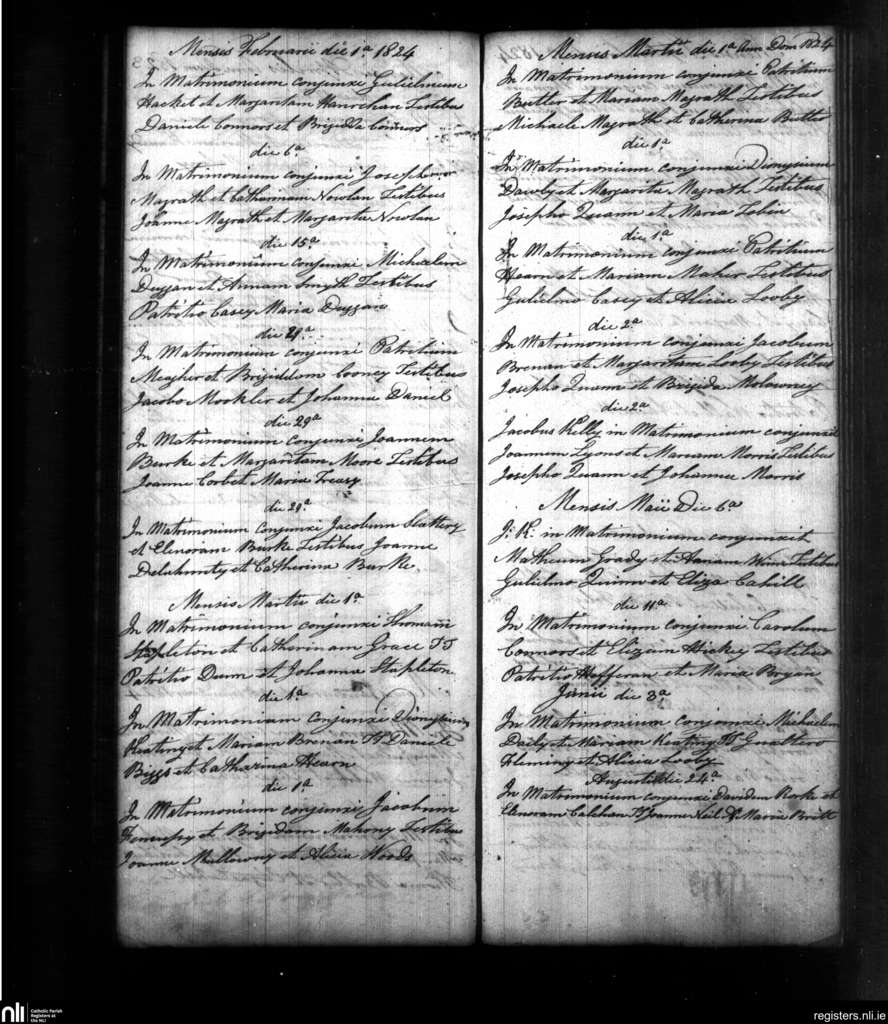 Mensis Februarii die 1.a 1824
In Matrimonium conjunxi Gulielmum
Hacket et Margaritam Hanrahan Testibus
Daniele Connors et Brigida Connors
die 6a
In Matrimonium conjunxi Josephum
Magrath et Catharinam Nowlan Testibus
Joanne Magrath et Margarita Nowlan
die 15a
In Matrimonium conjunxi Michaelem
Duggan et Annam Smyth Testibus
Patritio Casey Maria Duggan
die 29a
In Matrimonium conjunxi Patritium
Meagher et Brigiddam Cooney Testibus
Jacobo Mockler et Johanna Daniel
die 29a
In Matrimonium conjunxi Joannem
Burke et Margaritam Moore Testibus
Joanne Corbet Maria Treasy
die 29a
In Matrimonium conjunxi Jacobum Slattery
et Elenoram Burke Testibus Joanne
Delahunty et Catherina Burke.
Mensis Martii die 1a
In Matrimonium conjunxi Thomam
Stapleton et Catherinam Grace TT
Patritio Dunn et Johanna Stapleton
die 1a
In Matrimonium conjunxi Dionysium
Keating et Mariam Brenan TT Daniele
Biggs et Catharina Hearn
die 1a
In Matrimonium conjunxi Jacobum
et Brigidam Mahony Testibus
Joanne Mullowny et Alicia Woods
Mensis Martii die 1a Ann Dom 1824
In Matrimonium conjunxi Patritium
Butler et Mariam Magrath Testibus
Michaele Magrath et Catherina Butler
die 1a
In Matrimonium conjunxi Dionysium
Dawly et Margarita Magrath Testibus
Josepho Quann et Maria Tobin
die 1a
In Matrimonium conjunxi Patritium
Hearn et Mariam Maher Testibus
Gulielmo Casey et Alicia Looby
die 2a
In Matrimonium conjunxi Jacobum
Brenan et Margaretam Looby Testibus
Josepho Quann et Brigida Molowney
die 2a
Jacobus Kelly in Matrimonium conjunxit
Joannem Lyons et Mariam Morris Testibus
Josepho Quann et Johanna Morris
Mensis Maii Die 6a
J. K. in Matrimonium conjunxit
Matheum Grady et Hanam Testibus
Gulielmo Quinn et Eliza Cahill
die 11a
In Matrimonium conjunxi Carolum
Connors et Elizam Hickey Testibus
Patritio Hefferan et Maria Bryan
Junii die 3a
In Matrimonium conjunxi Michaelem
Daily et Mariam Keating TT Gualtero
Fleming et Alicia Looby
Augusti die 24a
In Matrimonium conjunxi Davidem Rorke et
Elenoram Calehan TT Joanne Neil & Maria Britt
nli Catholic Parish
Registers at
the NLI
registers.nli.ie